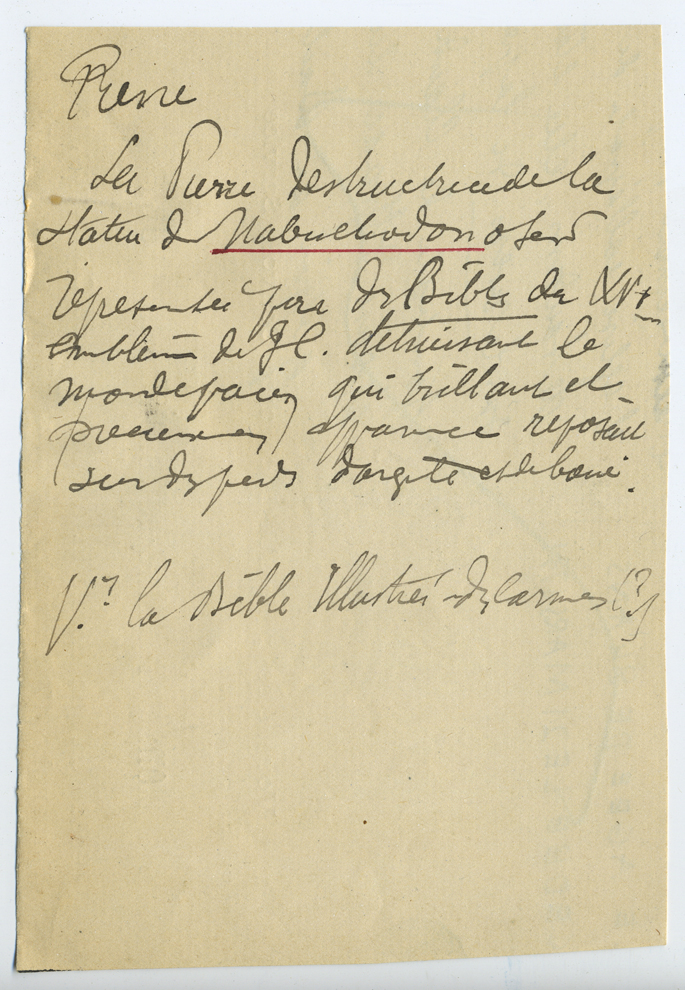 Pierre
La Pierre destructrice de la
statue de Nabuchodonosor
représentée par des Bibles du XVe
emblème de J.C. détruisant le
monde païen qui brillant et
 en apparence reposait
sur des pieds d'argile et de boue.
V. la Bible Illustrée des Carmes (?)